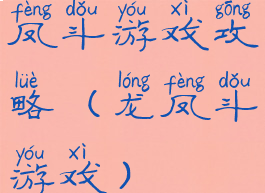 fèng dǒu yóu xì gōng
凤斗游戏攻
lüè lóng fèng dǒu
略（龙凤斗
yóu xì
游戏）